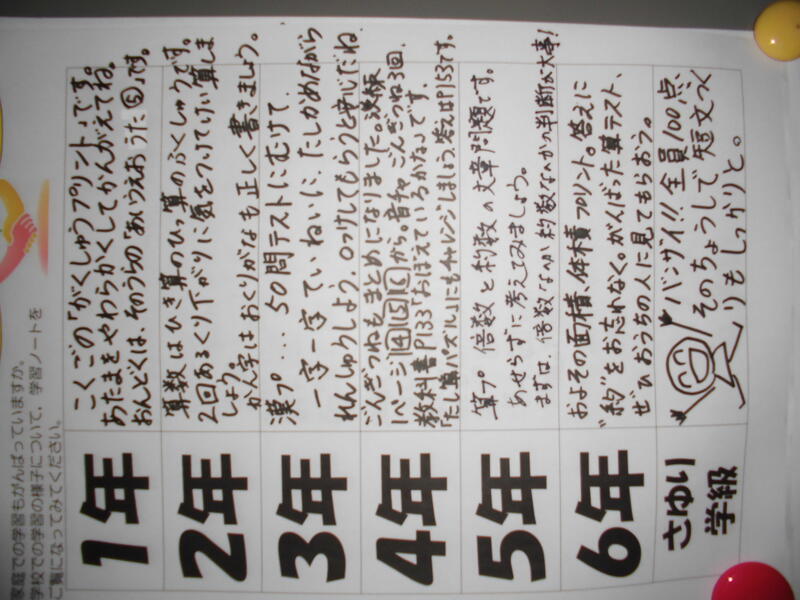 家庭での学習もがんばっていますか。
学校での学習の様子について、学習ノートを
ご覧になってみてください。
1年
こくごの「がくしゅうプリント」です。
あたまをやわらかくしてかんがえてね。
おんどくは、そのうちの「あいうえおうた⑤」です。
2年
算数はひき算のひっ算のふくしゅうです。
2回あるくり下がりに気をつけてけい算しま
しょう。
かん字はおくりがなも正しく書きましょう。
3年
漢プ...50問テストにむけて
一字一字ていねいに、たしかめながら
れんしゅうしよう。○つけしてもらうと安心だね
4年
ごんぎつねもまとめになりました。漢板
1ページ④⑤⑥から。音チャ ごんぎつね3回、
教科書P133「おぼえているかな」です。
「たし算パズル」にもチャレンジしましょう答えはP153です。
5年
算プ 倍数と約数の文章問題です。
あせらずに考えてみましょう。
まずは、倍数なのか約数なのかの判断が大事!
6年
およその面積、体積プリント。答えに
"約"をお忘れなく。がんばった算テスト、
ぜひおうちの人に見てもらおう。
さゆり
学級
バンザイ!!全員100点、
そのちょうしで短文づく
りもしっかりと。